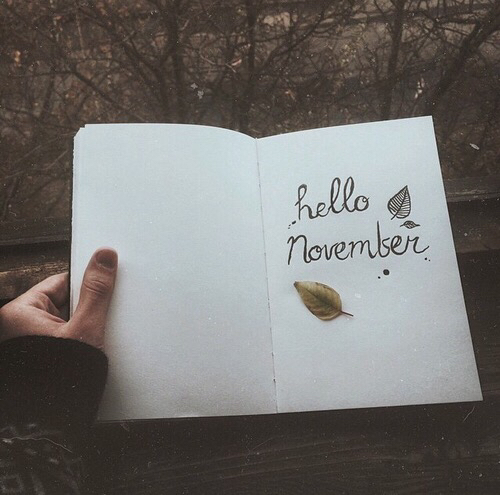 hello
November